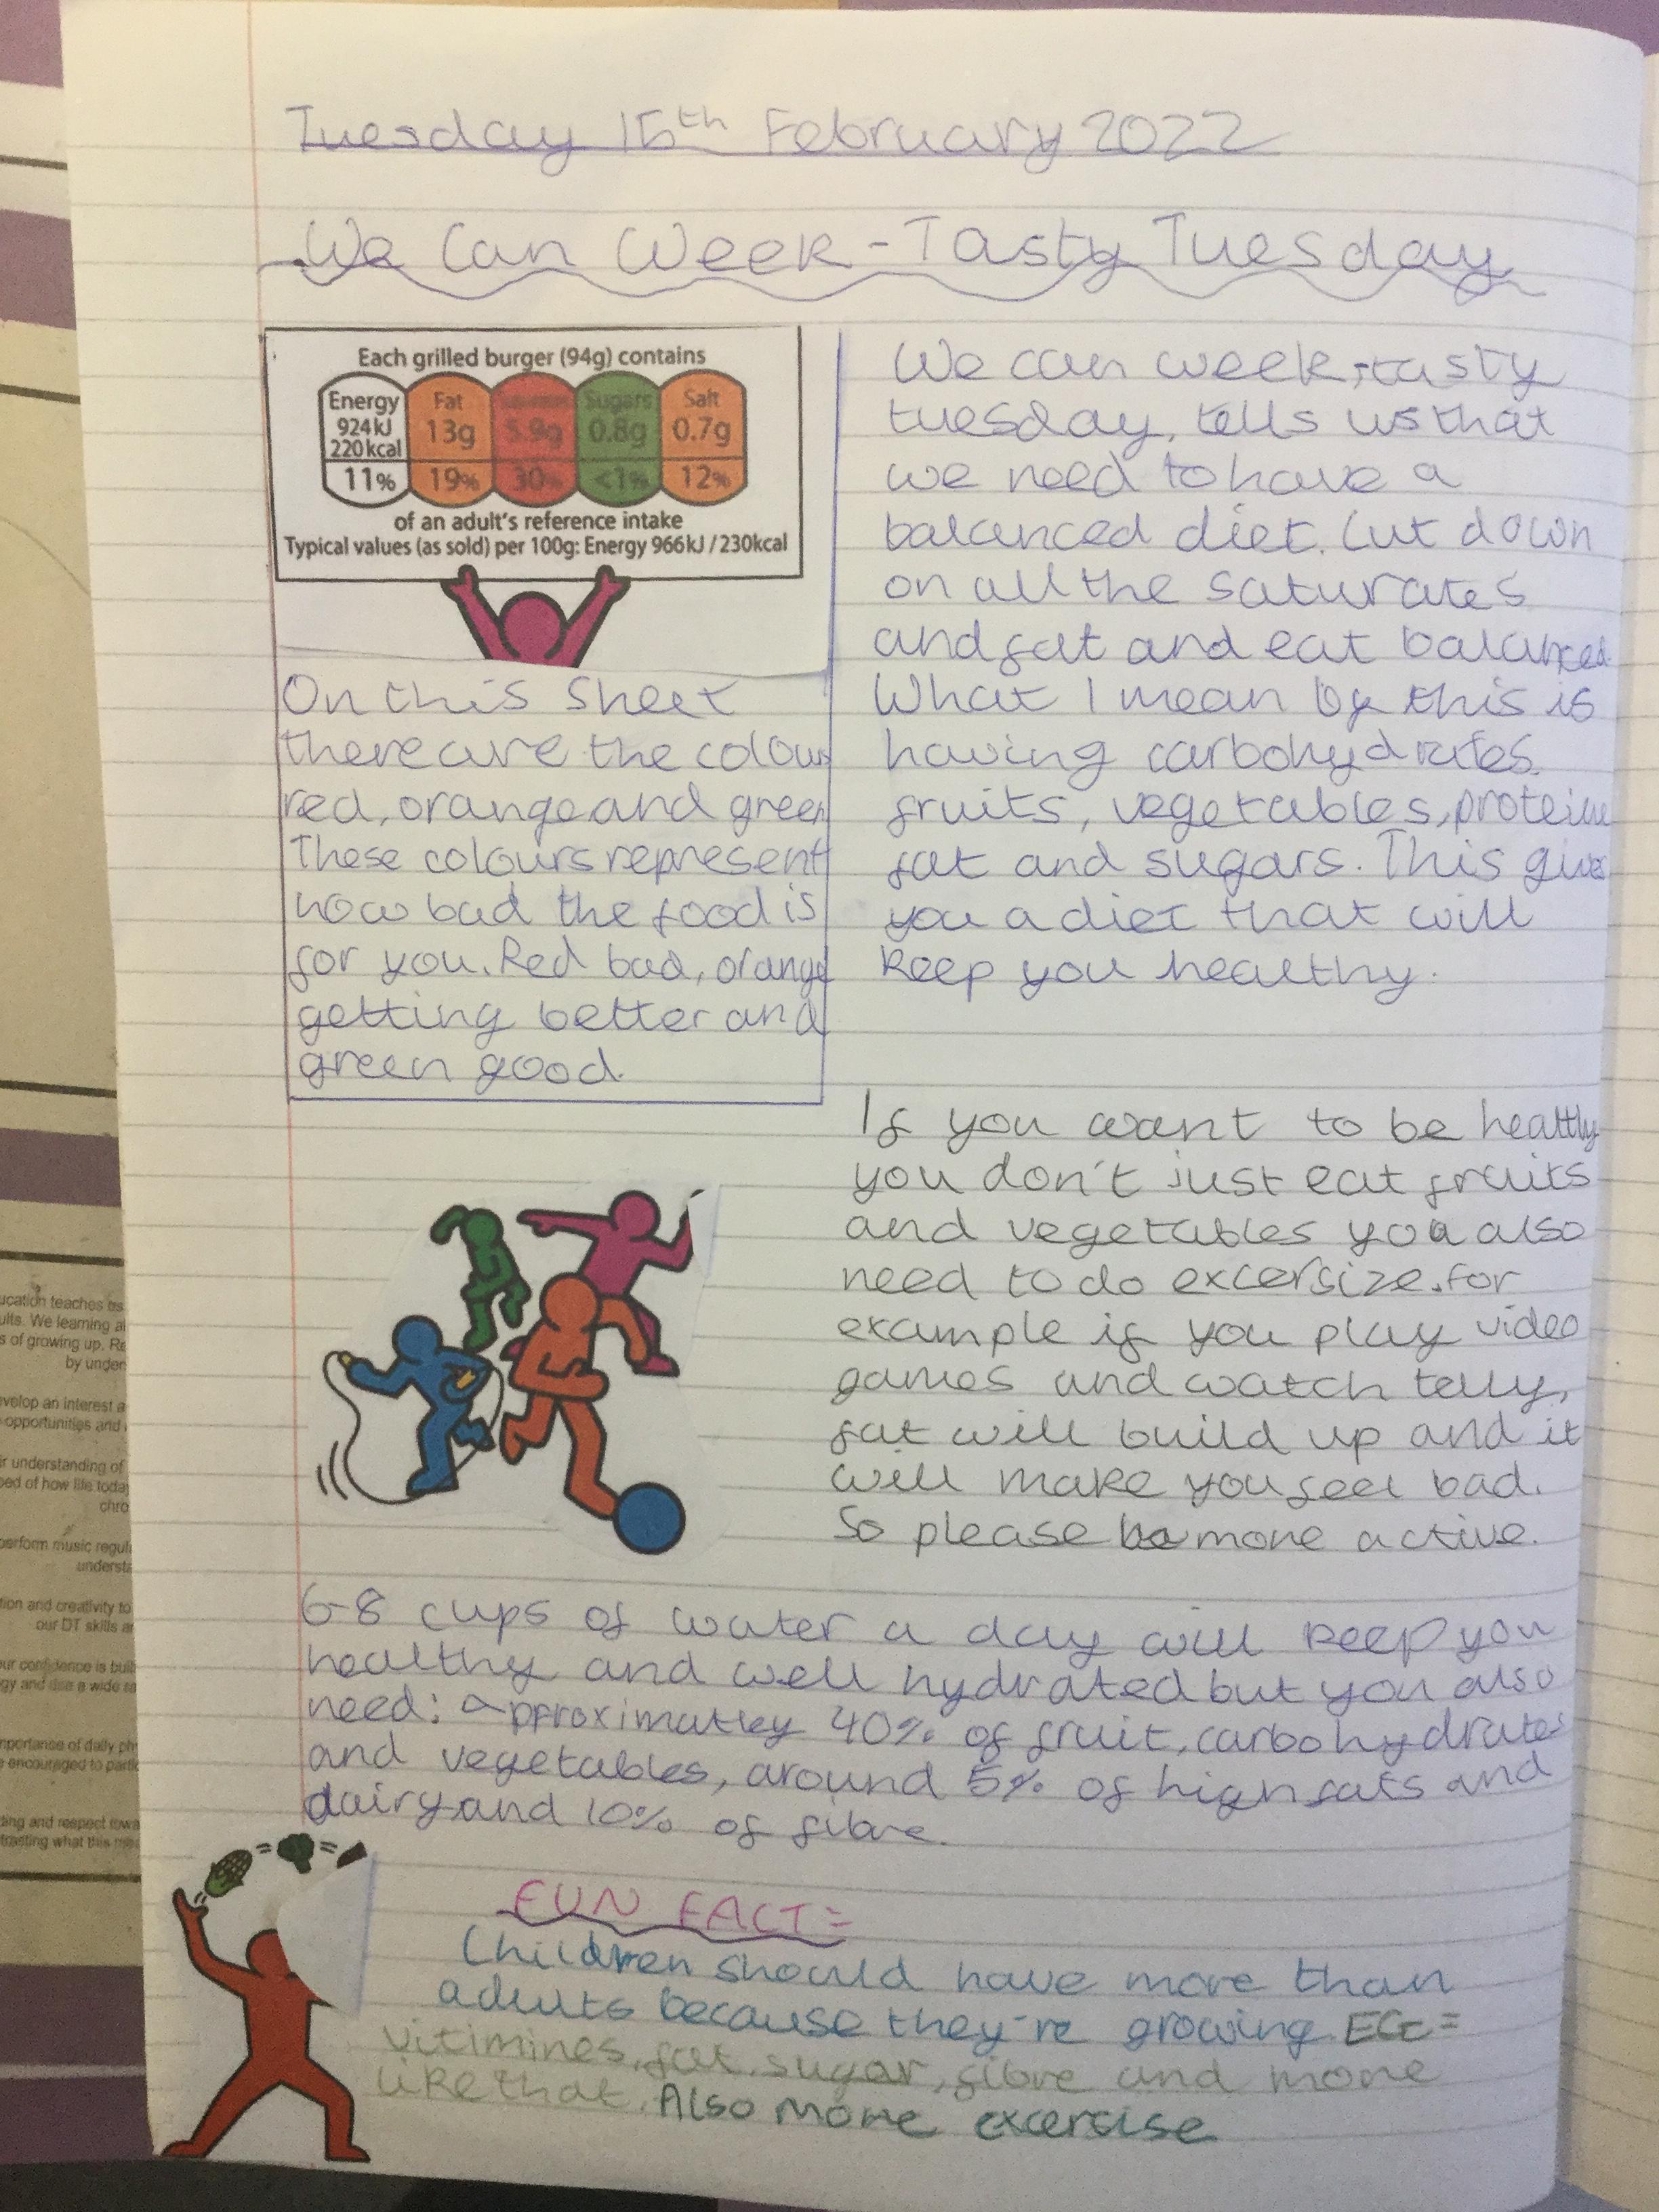 Tuesday 15th February 2022
We Can Week - Tasty Tuesday
Each grilled burger (94g) contains
Energy 924kJ 220kcal 11%
Fat 13g 19%
5.9g 30%
Sugars 0.8g <1%
Salt 0.7g 12%
of an adult's reference intake
Typical values (as sold) per 100g: Energy 966kJ / 230kcal
On this sheet
there are the colours
red, orange and green
These colours represent
how bad the food is
for you. Red bad, orange
getting better and
green good.
We can week, tasty
tuesday, tells us that
we need to have a
balanced diet. Cut down
on all the saturates
and fat and eat balanced.
What I mean by this is
having carbohydrates,
fruits, vegetables, protein
fat and sugars. This gives
you a diet that will
keep you healthy.
If you want to be healthy
you don't just eat fruits
and vegetables you also
need to do excersize. For
example if you play video
games and watch telly,
fat will build up and it
will make you feel bad.
So please be more active.
6-8 cups of water a day will keep you
healthy and well hydrated but you also
need: approximatley 40% of fruit, carbohydrates
and vegetables, around 5% of high fats and
dairy and 10% of fibre.
FUN FACT=
Children should have more than
adults because they're growing. EG=
vitimines, fat, sugar, fibre and more
like that. Also more excersise
ucation teaches us
ults. We learning a
s of growing up. Re
by under
evelop an interest a
opportunities and
ir understanding of
ped of how life toda
chro
perform music regul
understa
tion and creativity to
our DT skills a
ur confidence is buil
gy and use a wide ra
mportance of daily ph
e encouraged to partic
ting and respect towa